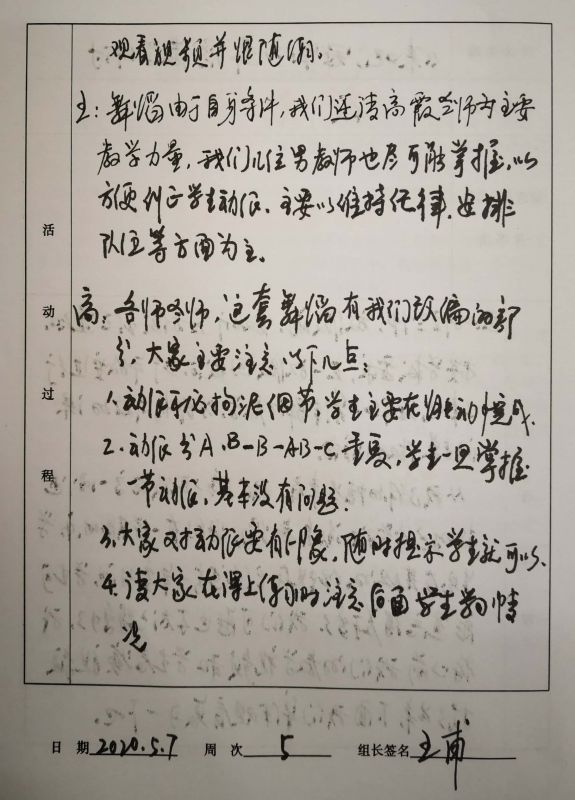 观看视频并跟随练习。
王：舞蹈由于自身条件，我们还请高霞老师为主要
教学力量，我们几位男教师也尽可能掌握，以
方便纠正学生动作。主要以维持纪律，安排
队伍等方面为主。
高：各师老师，这套舞蹈有我们改编的部
分，大家主要注意以下几点：
1.动作不必拘泥细节，学生主要在动中完成.
2.动作分A.B-B-AB-C重复，学生一旦掌握
一节动作，基本没有问题.
3.大家对动作要有印象，随时提示学生就可以.
4.请大家在课上练习时注意后面学生学习情
况
活
动
过
程
日 期 2020.5.7 周 次 5 组长签名 王甫